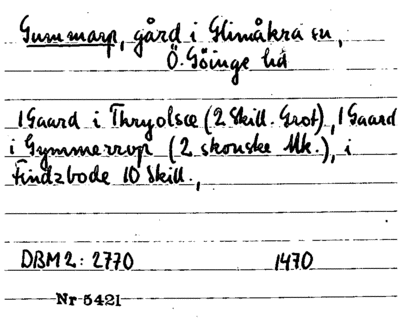 Gummarp, gård i Glimåkra sn,
Ö. Göinge hd
1 Gaard i Thryolsce (2 Skill. Grot), 1 Gaard
i Gymmerrop (2 skonske Mk.), i
Findzbode 10 Skill.,
DBM 2: 2770 1470
Nr 5421